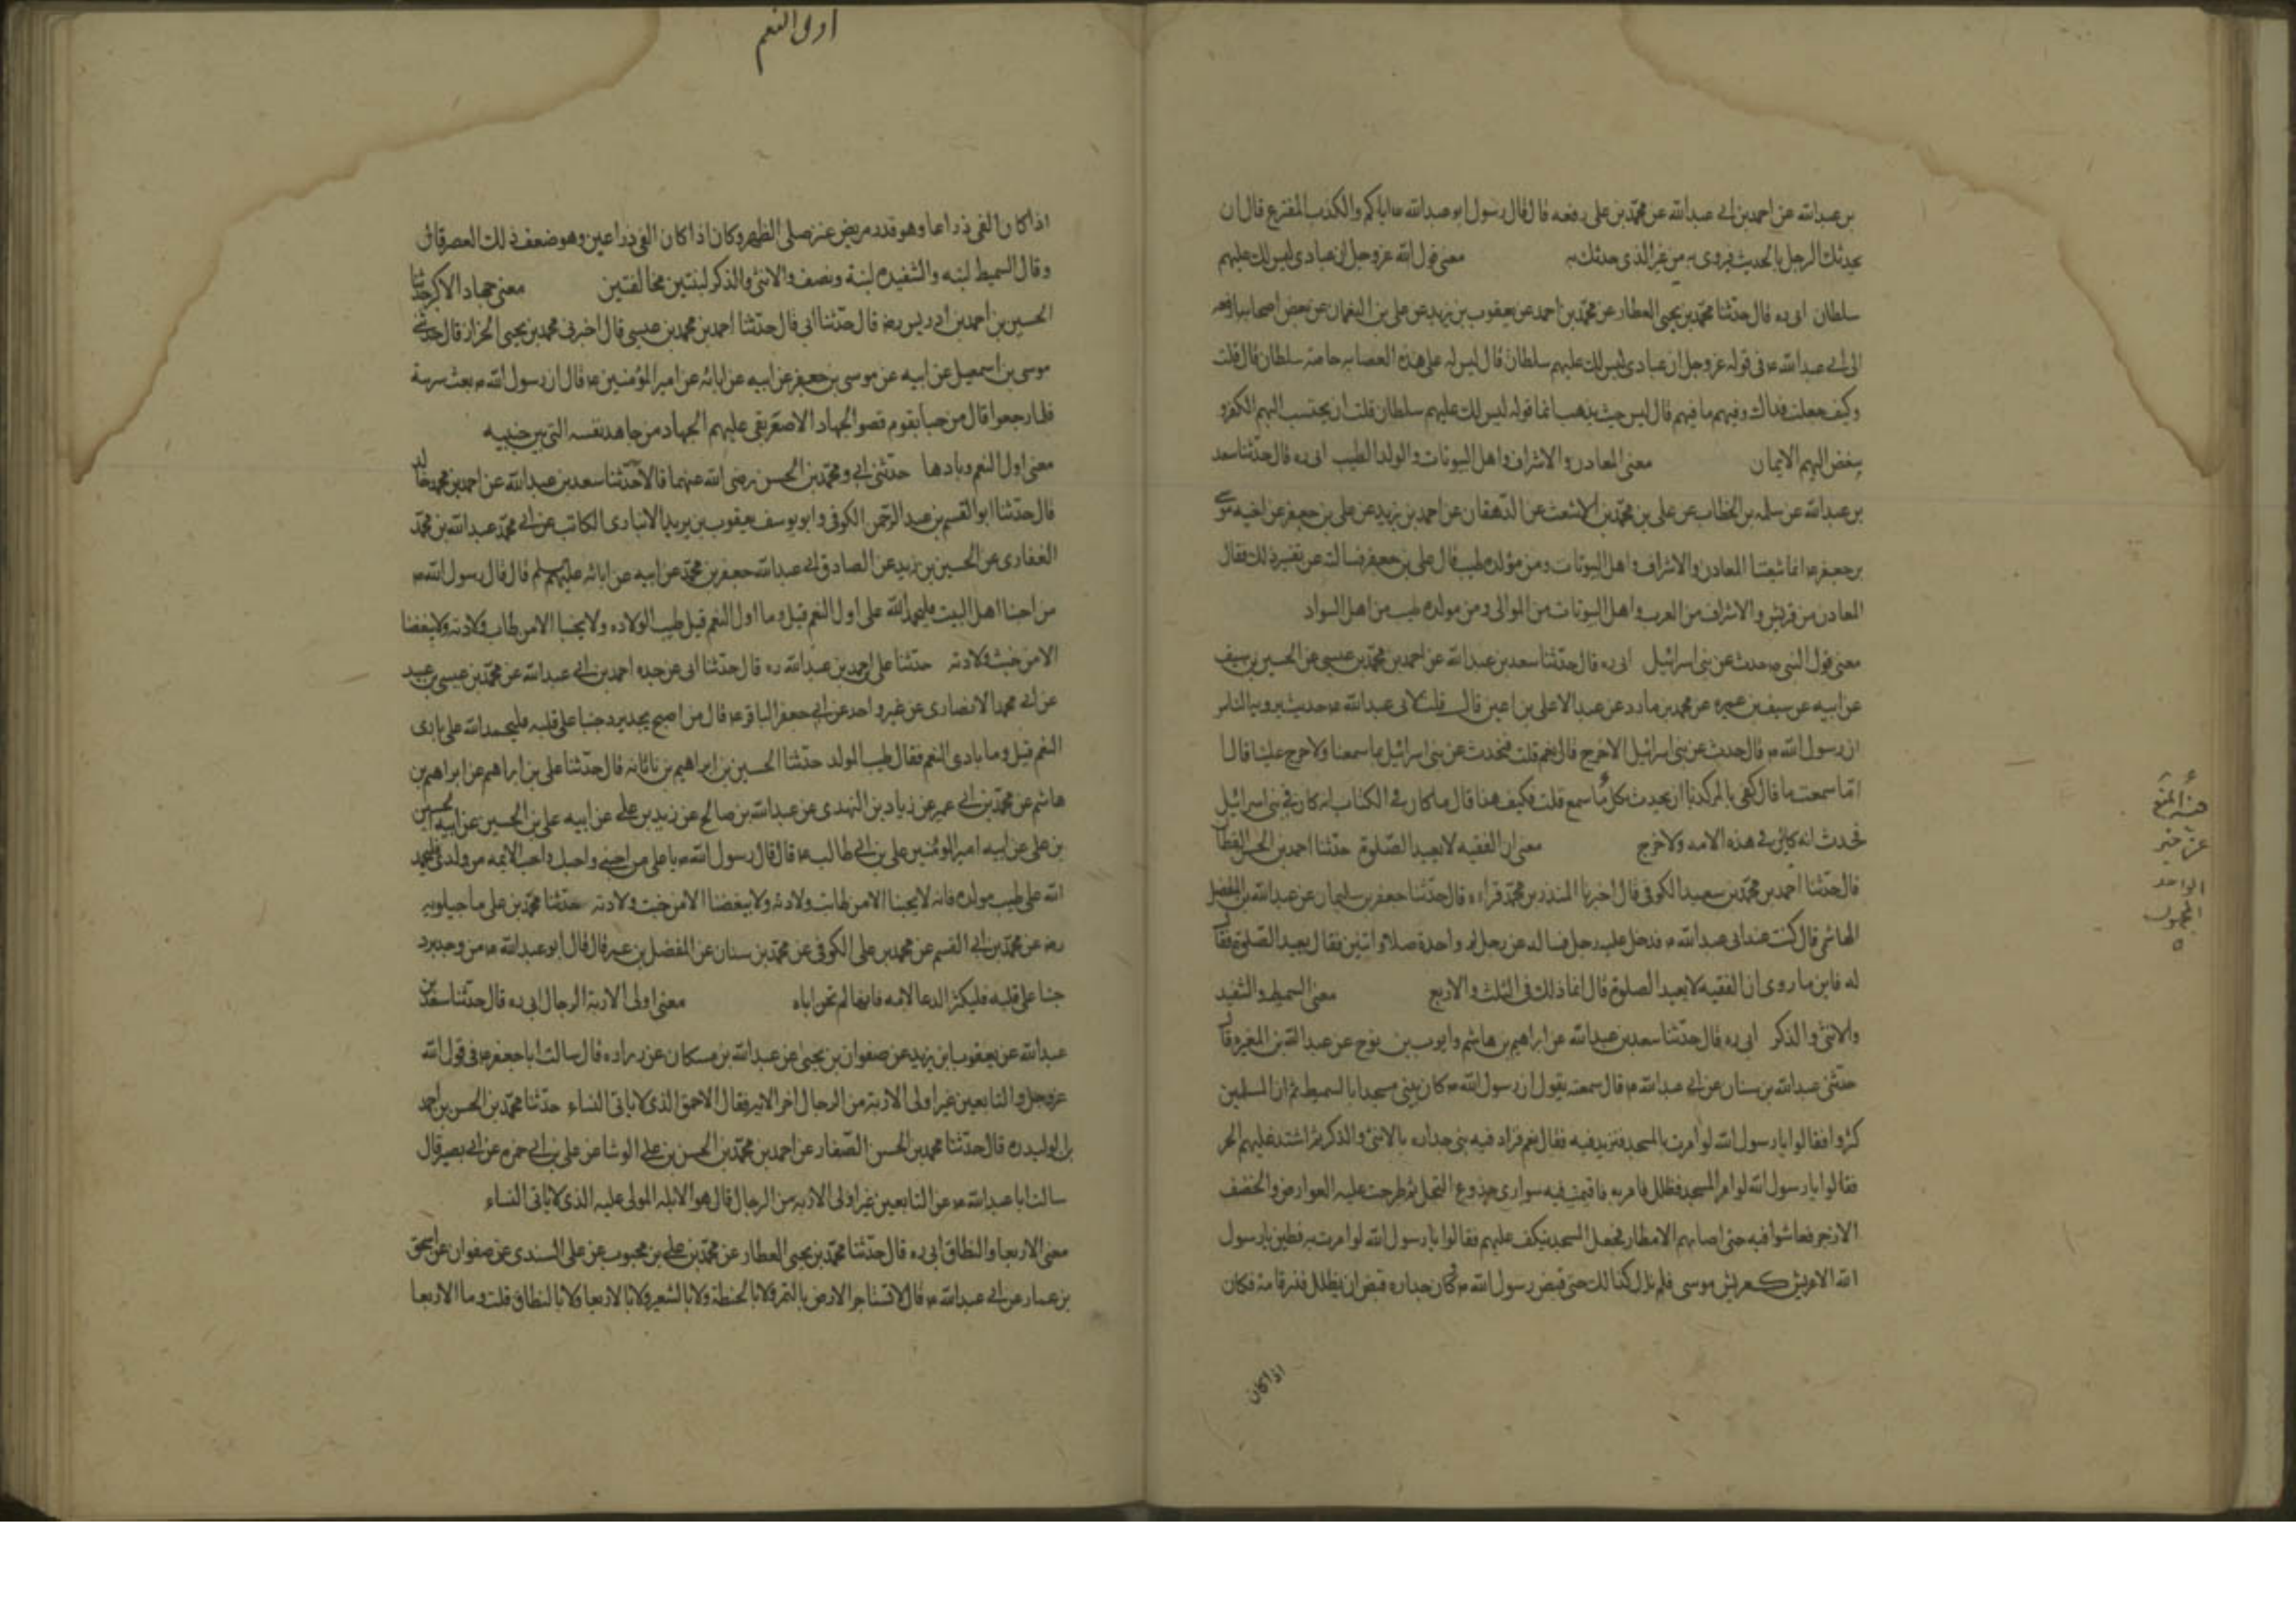 بن عبدالله عن احمد بن ابى عبدالله عن محمد بن على رفعه قال قال رسول ابو عبدالله ع اياكم والكذب المفترع قال ان
يحدثك الرجل بالحديث فيروى به من غير الذى حدثك به معنى قول الله عز وجل ان عبادى ليس لك عليهم
سلطان ابى ره قال حدثنا محمد بن يحيى العطار عن محمد بن احمد عن يعقوب بن يزيد عن على بن النعمان عن بعض اصحابنا رفعه
الى ابى عبدالله ع فى قوله عز وجل ان عبادى ليس لك عليهم سلطان قال ليس له على هذه العصابه خاصه سلطان قال قلت
وكيف جعلت فداك وفيهم ما فيهم قال ليس حيث يذهب انما قوله ليس لك عليهم سلطان قلت ان يحبب اليهم الكفر و
يبغض اليهم الايمان معنى المعادن والاشراف واهل البيوتات والولد الطيب ابى ره قال حدثنا سعد
بن عبدالله عن سلمه بن الخطاب عن على بن محمد بن الاشعث عن الدهقان عن احمد بن زيد عن على بن جعفر عن اخيه موسى
بن جعفر ع انما شيعتنا المعادن والاشراف واهل البيوتات ومن مولده طيب قال على بن جعفر فسالت عن تفسير ذلك فقال
المعادن من قريش والاشراف من العرب واهل البيوتات من الموالى ومن مولده طيب من اهل السواد
معنى قول النبى ص حدث عن بنى اسرائيل ابى ره قال حدثنا سعد بن عبدالله عن احمد بن محمد بن عيسى عن الحسين بن سيف
عن ابيه عن سيف بن عميره عن محمد بن مارد عن عبدالاعلى بن اعين قال قلت لابى عبدالله ع حديث يرويه الناس
ان رسول الله ص قال حدث عن بنى اسرائيل ولا حرج قال نعم قلت فنحدث عن بنى اسرائيل بما سمعنا ولا حرج علينا قال ا
ما سمعت ما قال كفى بالمرء كذبا ان يحدث بكل ما سمع قلت فكيف هذا قال ما كان فى الكتاب انه كان فى بنى اسرائيل
فحدث انه كاين فى هذه الامه ولا حرج معنى ان الفقيه لا يعيد الصلوة حدثنا احمد بن الحسن القطان
قال حدثنا احمد بن محمد بن سعيد الكوفى قال اخبرنا المنذر بن محمد قراءه قال حدثنا جعفر بن سليمان عن عبدالله بن الفضل
الهاشمى قال كنت عند ابى عبدالله ع فدخل عليه رجل فساله عن رجل لم واحدة صلا او اثنين فقال يعيد الصلوة فقال
له فاين ما روى ان الفقيه لا يعيد الصلوة قال انما ذلك فى الثلث والاربع معنى السميط والشفيد
والانثى والذكر ابى ره قال حدثنا سعد بن عبدالله عن ابراهيم بن هاشم وايوب بن نوح عن عبدالله بن المغيره قال
حدثنى عبدالله بن سنان عن ابى عبدالله ع قال سمعته يقول ان رسول الله ص كان بنى مسجدا بالسميط ثم ان المسلمين
كثروا فقالوا يا رسول الله لو امرت بالمسجد فتزيد فيه فقال نعم فزاد فيه بنى جداره بالانثى والذكر ثم اشتد عليهم الحر
فقالوا يا رسول الله لو امر المسجد فظلل فامر به فاقيمت فيه سوارى جذوع النخل ثم طرحت عليه العوارض والخصف
الاذخر فعاشوا فيه حتى اصابهم الامطار فجعل المسجد يكف عليهم فقالوا يا رسول الله لو امرت به فطين يا رسول
الله الا عريش كعريش موسى فلم نزل كذلك حتى قبض رسول الله ص كان جداره قبض ان يظلل قدر قامة فكان
اذا كان
هذا المنع
عن خبر
الواحد
المجهول
اول النعم
اذا كان الفىء ذراعا وهو قدر مربض عنز صلى الظهر وكان اذا كان الفىء ذراعين وهو ضعف ذلك العصر قال
وقال السميط لبنه والشفيده لبنة ونصف والانثى والذكر لبنتين مخالفتين معنى جهاد الاكبر حدثنا
الحسين بن احمد بن ادريس رضه قال حدثنا ابى قال حدثنا احمد بن محمد بن عيسى قال اخبرنى محمد بن يحيى الخزاز قال حدثنى
موسى بن اسمعيل عن ابيه عن موسى بن جعفر عن ابيه عن ابائه عن امير المؤمنين ع قال ان رسول الله ص بعث سرية
فلما رجعوا قال مرحبا بقوم قضوا الجهاد الاصغر بقى عليهم الجهاد من جاهد نفسه التى بين جنبيه
معنى اول النعم وبادها حدثنى ابى ومحمد بن الحسن رضى الله عنهما قالا حدثنا سعد بن عبدالله عن احمد بن محمد خالد
قال حدثنا ابو القسم بن عبدالرحمن الكوفى وابو يوسف يعقوب بن يزيد الانبارى الكاتب عن ابى محمد عبدالله بن محمد
الغفارى عن الحسين بن زيد عن الصادق ابى عبدالله جعفر بن محمد عن ابيه عن ابائه عليهم سلم قال قال رسول الله ص
من احبنا اهل البيت فليحمد الله على اول النعم قيل وما اول النعم قيل طيب الولاده ولا يحبنا الا من طاب ولادته ولا يبغضنا
الا من خبث ولادته حدثنا على احمد بن عبدالله ره قال حدثنا ابى عن جده احمد بن ابى عبدالله عن محمد بن عيسى بن عبيد
عن ابى محمد الانصارى عن غير واحد عن ابى جعفر الباقر ع قال من اصبح يجد برد حبنا على قلبه فليحمد الله على بادى
النعم قيل وما بادى النعم فقال طيب المولد حدثنا الحسين بن ابراهيم بن ناتانه قال حدثنا على بن ابراهيم عن ابراهيم بن
هاشم عن محمد بن ابى عمير عن زياد بن النهدى عن عبدالله بن صالح عن زيد بن على عن ابيه على بن الحسين عن ابيه الحسين
بن على عن ابيه امير المؤمنين على بن ابى طالب ع قال قال رسول الله ص يا على من احبنى واحبك واحب الائمه من ولدك فليحمد
الله على طيب مولده فانه لا يحبنا الا من طابت ولادته ولا يبغضنا الا من خبث ولادته حدثنا محمد بن على ماجيلويه
رضه عن محمد بن ابى القسم عن محمد بن على الكوفى عن محمد بن سنان عن المفضل بن عمر قال قال ابو عبدالله ع من وجد برد
حبنا على قلبه فليكثر الدعا لامه فانها لم تخن اباه معنى اولى الاربة الرجال ابى ره قال حدثنا سعد بن
عبدالله عن يعقوب ابن يزيد عن صفوان بن يحيى عن عبدالله بن مسكان عن زراره قال سالت ابا جعفر ع فى قول الله
عز وجل والتابعين غير اولى الاربة من الرجال اخر الاية فقال الاحمق الذى لا ياتى النساء حدثنا محمد بن الحسن بن احمد
بن الوليد ره قال حدثنا محمد بن الحسن الصفار عن احمد بن محمد بن الحسن بن على الوشا عن على بن ابى حمزه عن ابى بصير قال
سالت ابا عبدالله ع عن التابعين غير اولى الاربه من الرجال قال هو الابله المولى عليه الذى لا ياتى النساء
معنى الاربعا والنطاق ابى ره قال حدثنا محمد بن يحيى العطار عن محمد بن على بن محبوب عن على السندى عن صفوان عن اسحق
بن عمار عن ابى عبدالله ع قال لا تستاجر الارض بالتمر ولا بالحنطة ولا بالشعير ولا بالاربعا ولا بالنطاق قلت وما الاربعا